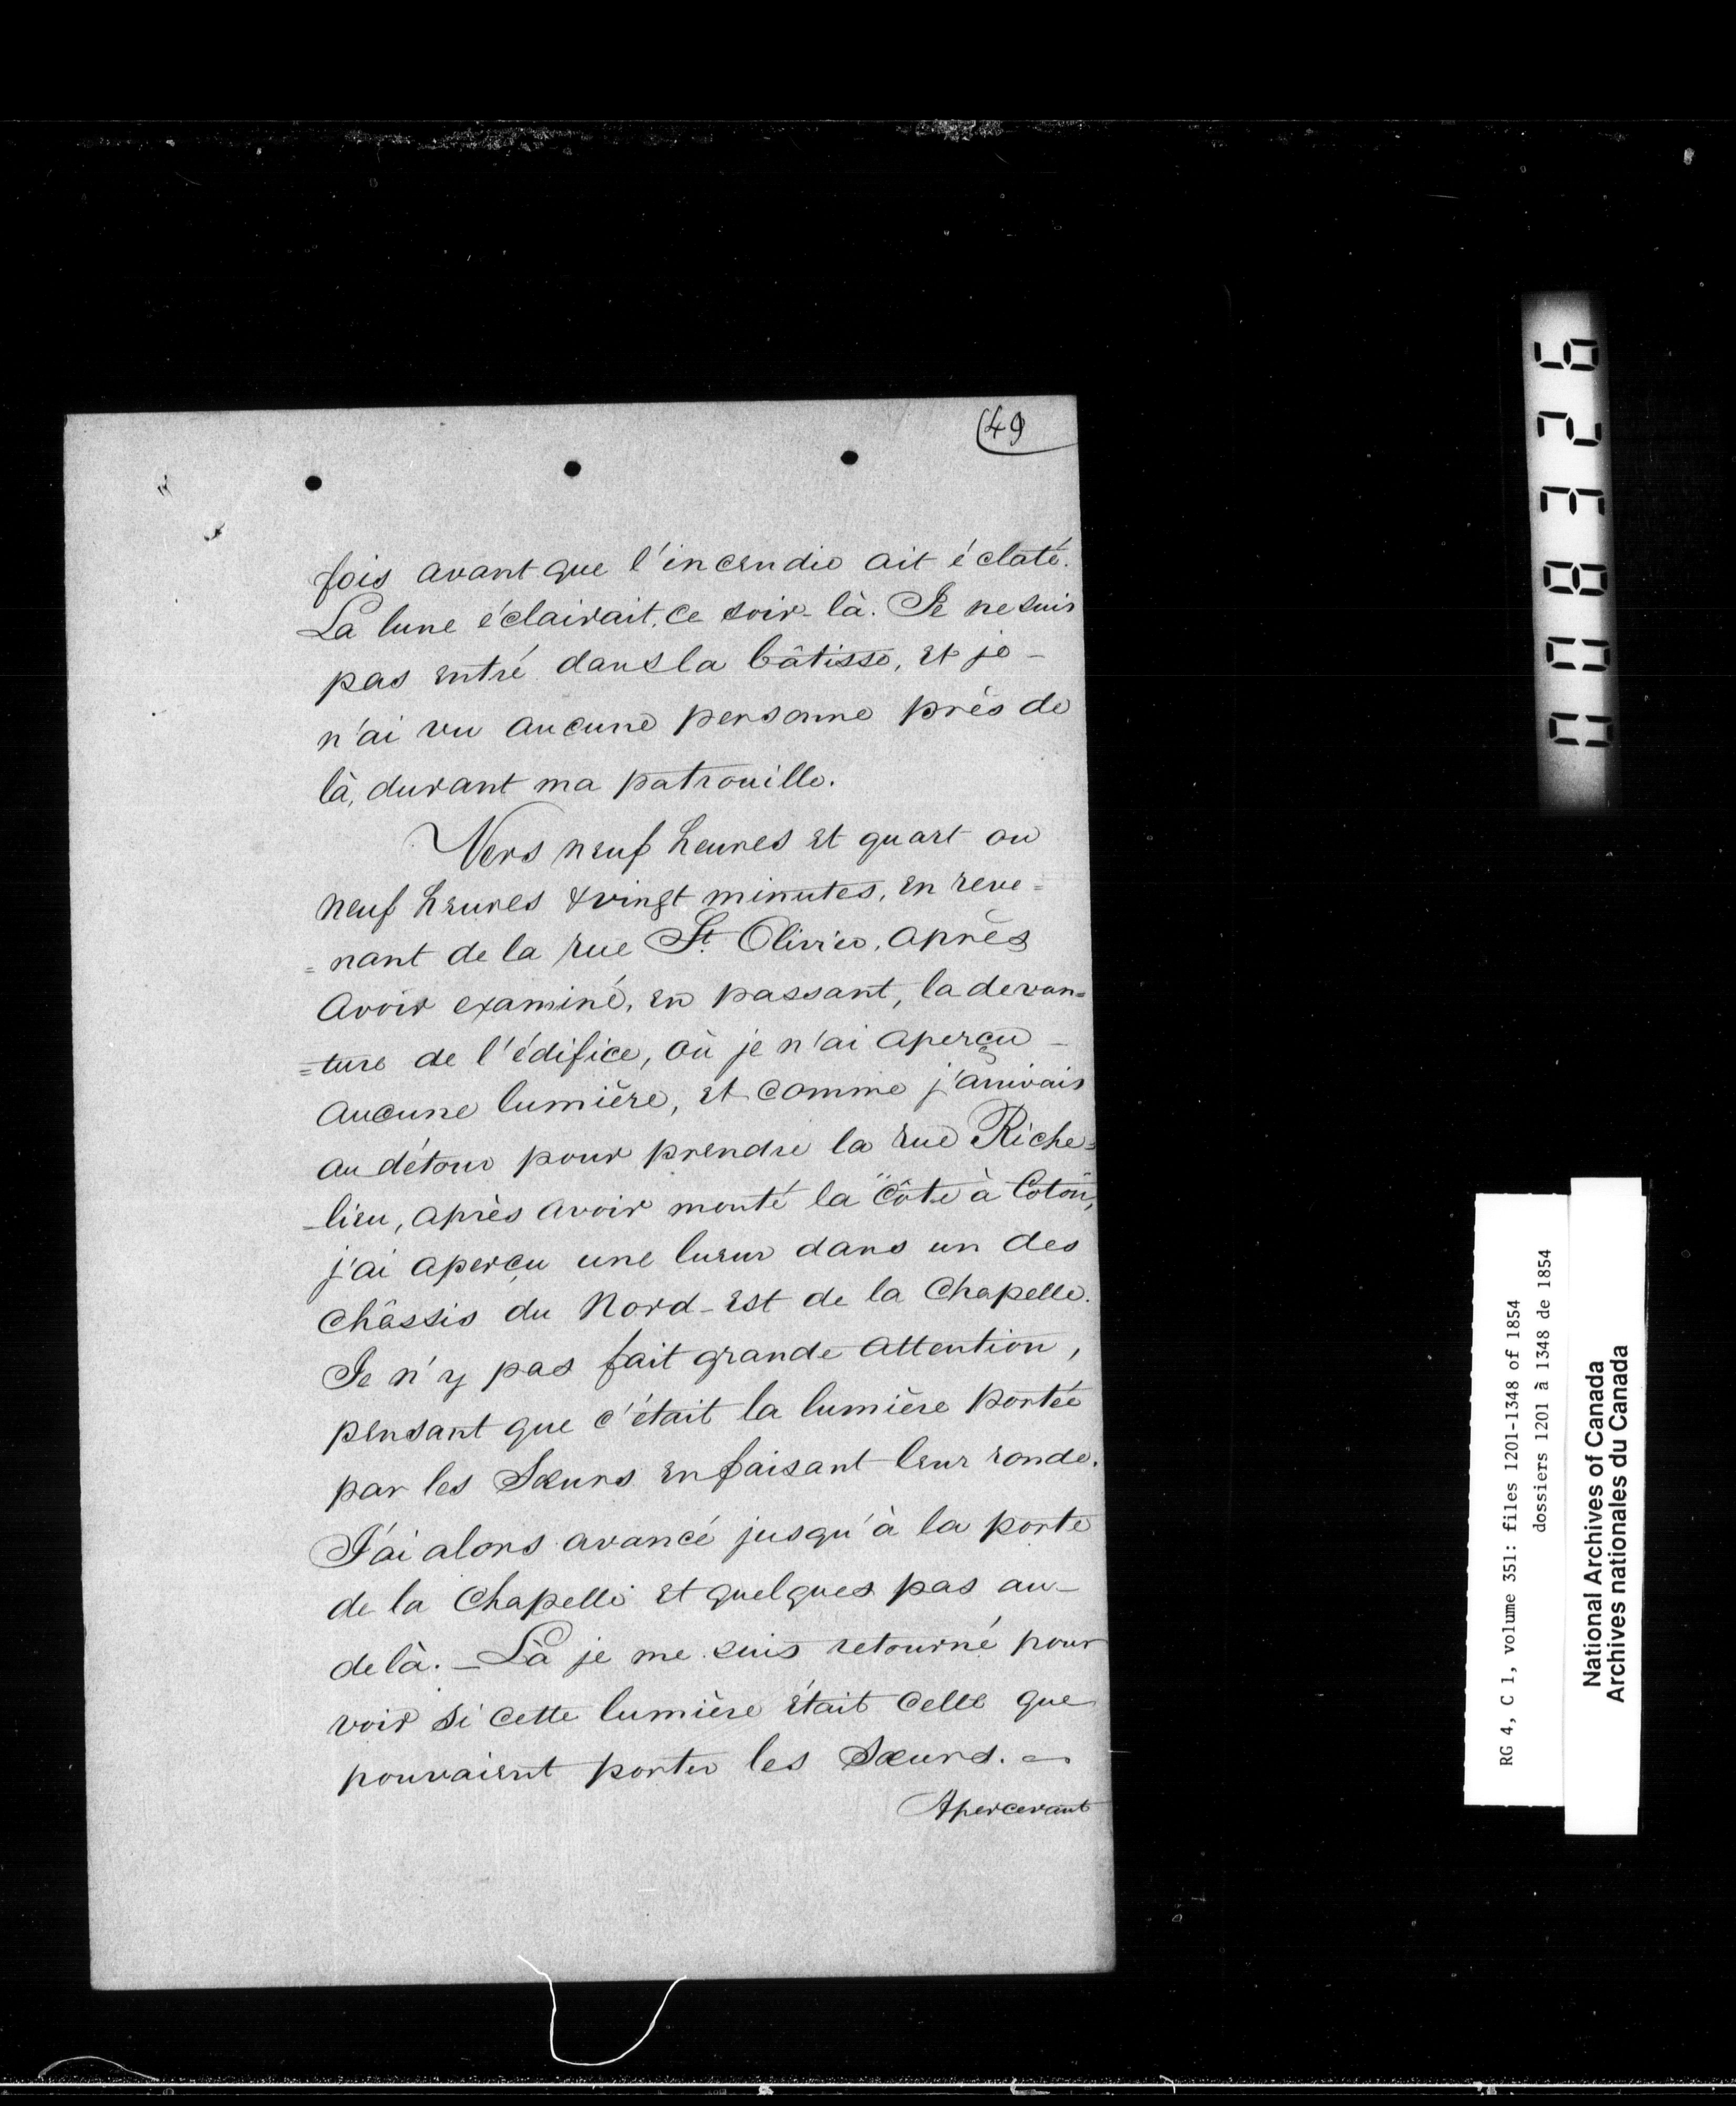 (49
fois avant que l'incendie ait éclaté.
La lune éclairait, ce soir-là. Je ne suis
pas entré dans la bâtisse, et je -
n'ai vu aucune personne près de
là, durant ma patrouille.
Vers neuf heures et quart ou
neuf heures & vingt minutes, en reve=
=nant de la rue St. Olivier, après
avoir examiné, en passant, la devan=
=ture de l'édifice, où je n'ai aperçu -
aucune lumière, et comme j'arrivais
au détour pour prendre la rue Riche=
-lieu, après avoir monté la "Côte à Coton",
j'ai aperçu une lueur dans un des
châssis du Nord-Est de la Chapelle.
Je n'y pas fait grande attention,
pensant que c'était la lumière portée
par les Sœurs en faisant leur ronde.
J'ai alors avancé jusqu'à la porte
de la Chapelle et quelques pas au-
delà. - Là je me suis retourné pour
voir si cette lumière était celle que
pouvaient porter les Sœurs. -
Apercevant
008326
RG 4, C 1, volume 351: files 1201-1348 of 1854
dossiers 1201 à 1348 de 1854
National Archives of Canada
Archives nationales du Canada